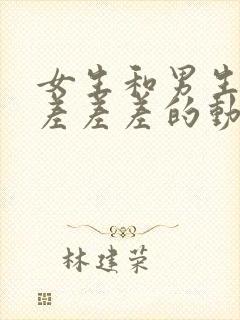 女生和男生
差差差的動
林建荣